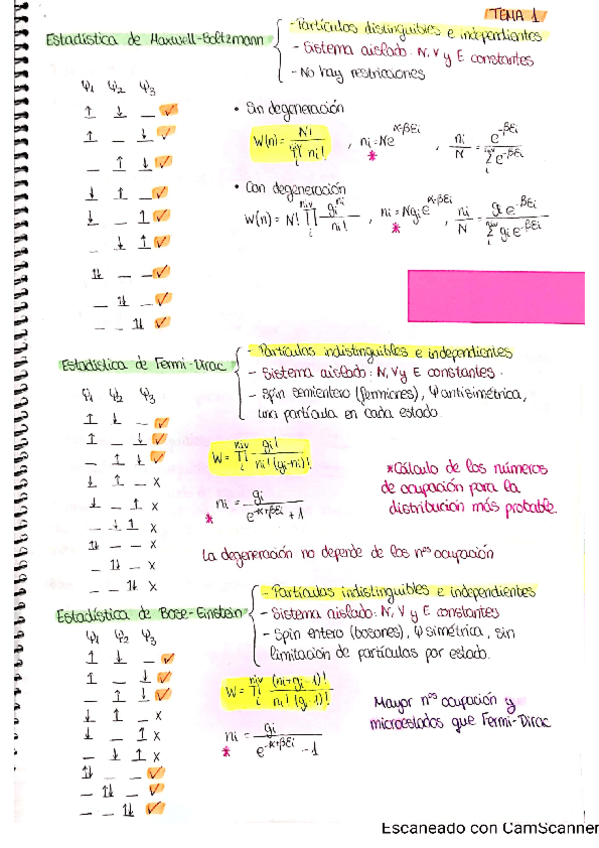 TEMA 1
Estadística de Maxwell-Boltzmann
- Partículas distinguibles e independientes
- Sistema aislado: N, V y E constantes
- No hay restricciones
Ψ₁ Ψ₂ Ψ₃
↑ ↓ _ ✓
↑ _ ↓ ✓
_ ↑ ↓ ✓
↓ ↑ _ ✓
↓ _ ↑ ✓
_ ↓ ↑ ✓
↑↓ _ _ ✓
_ ↑↓ _ ✓
_ _ ↑↓ ✓
• Sin degeneración
W(n) = N! / ∏ᵢⁿⁱᵛ nᵢ! , nᵢ = Ne^(α-βεᵢ) * , nᵢ/N = e^(-βεᵢ) / Σᵢⁿⁱᵛ e^(-βεᵢ)
• Con degeneración
W(n) = N! ∏ᵢⁿⁱᵛ gᵢ^(nᵢ) / nᵢ! , nᵢ = Ngᵢe^(α-βεᵢ) * , nᵢ/N = gᵢe^(-βεᵢ) / Σᵢⁿⁱᵛ gᵢe^(-βεᵢ)
Estadística de Fermi-Dirac
- Partículas indistinguibles e independientes
- Sistema aislado: N, V y E constantes.
- Spin semientero (fermiones), Ψ antisimétrica,
una partícula en cada estado.
Ψ₁ Ψ₂ Ψ₃
↑ ↓ _ ✓
↑ _ ↓ ✓
_ ↑ ↓ ✓
↓ ↑ _ x
↓ _ ↑ x
_ ↓ ↑ x
↑↓ _ _ x
_ ↑↓ _ x
_ _ ↑↓ x
W = ∏ᵢⁿⁱᵛ gᵢ! / nᵢ! (gᵢ-nᵢ)!
nᵢ = gᵢ / e^(-α+βεᵢ) + 1
*
*Cálculo de los números
de ocupación para la
distribución más probable.
La degeneración no depende de los nºs ocupación
Estadística de Bose-Einstein
- Partículas indistinguibles e independientes
- Sistema aislado: N, V y E constantes
- Spin entero (bosones), Ψ simétrica, sin
limitación de partículas por estado.
Ψ₁ Ψ₂ Ψ₃
↑ ↓ _ ✓
↑ _ ↓ ✓
_ ↑ ↓ ✓
↓ ↑ _ x
↓ _ ↑ x
_ ↓ ↑ x
↑↓ _ _ ✓
_ ↑↓ _ ✓
_ _ ↑↓ ✓
W = ∏ᵢⁿⁱᵛ (nᵢ+gᵢ-1)! / nᵢ! (gᵢ-1)!
nᵢ = gᵢ / e^(-α+βεᵢ) - 1
*
Mayor nºs ocupación y
microestados que Fermi-Dirac
Escaneado con CamScanner